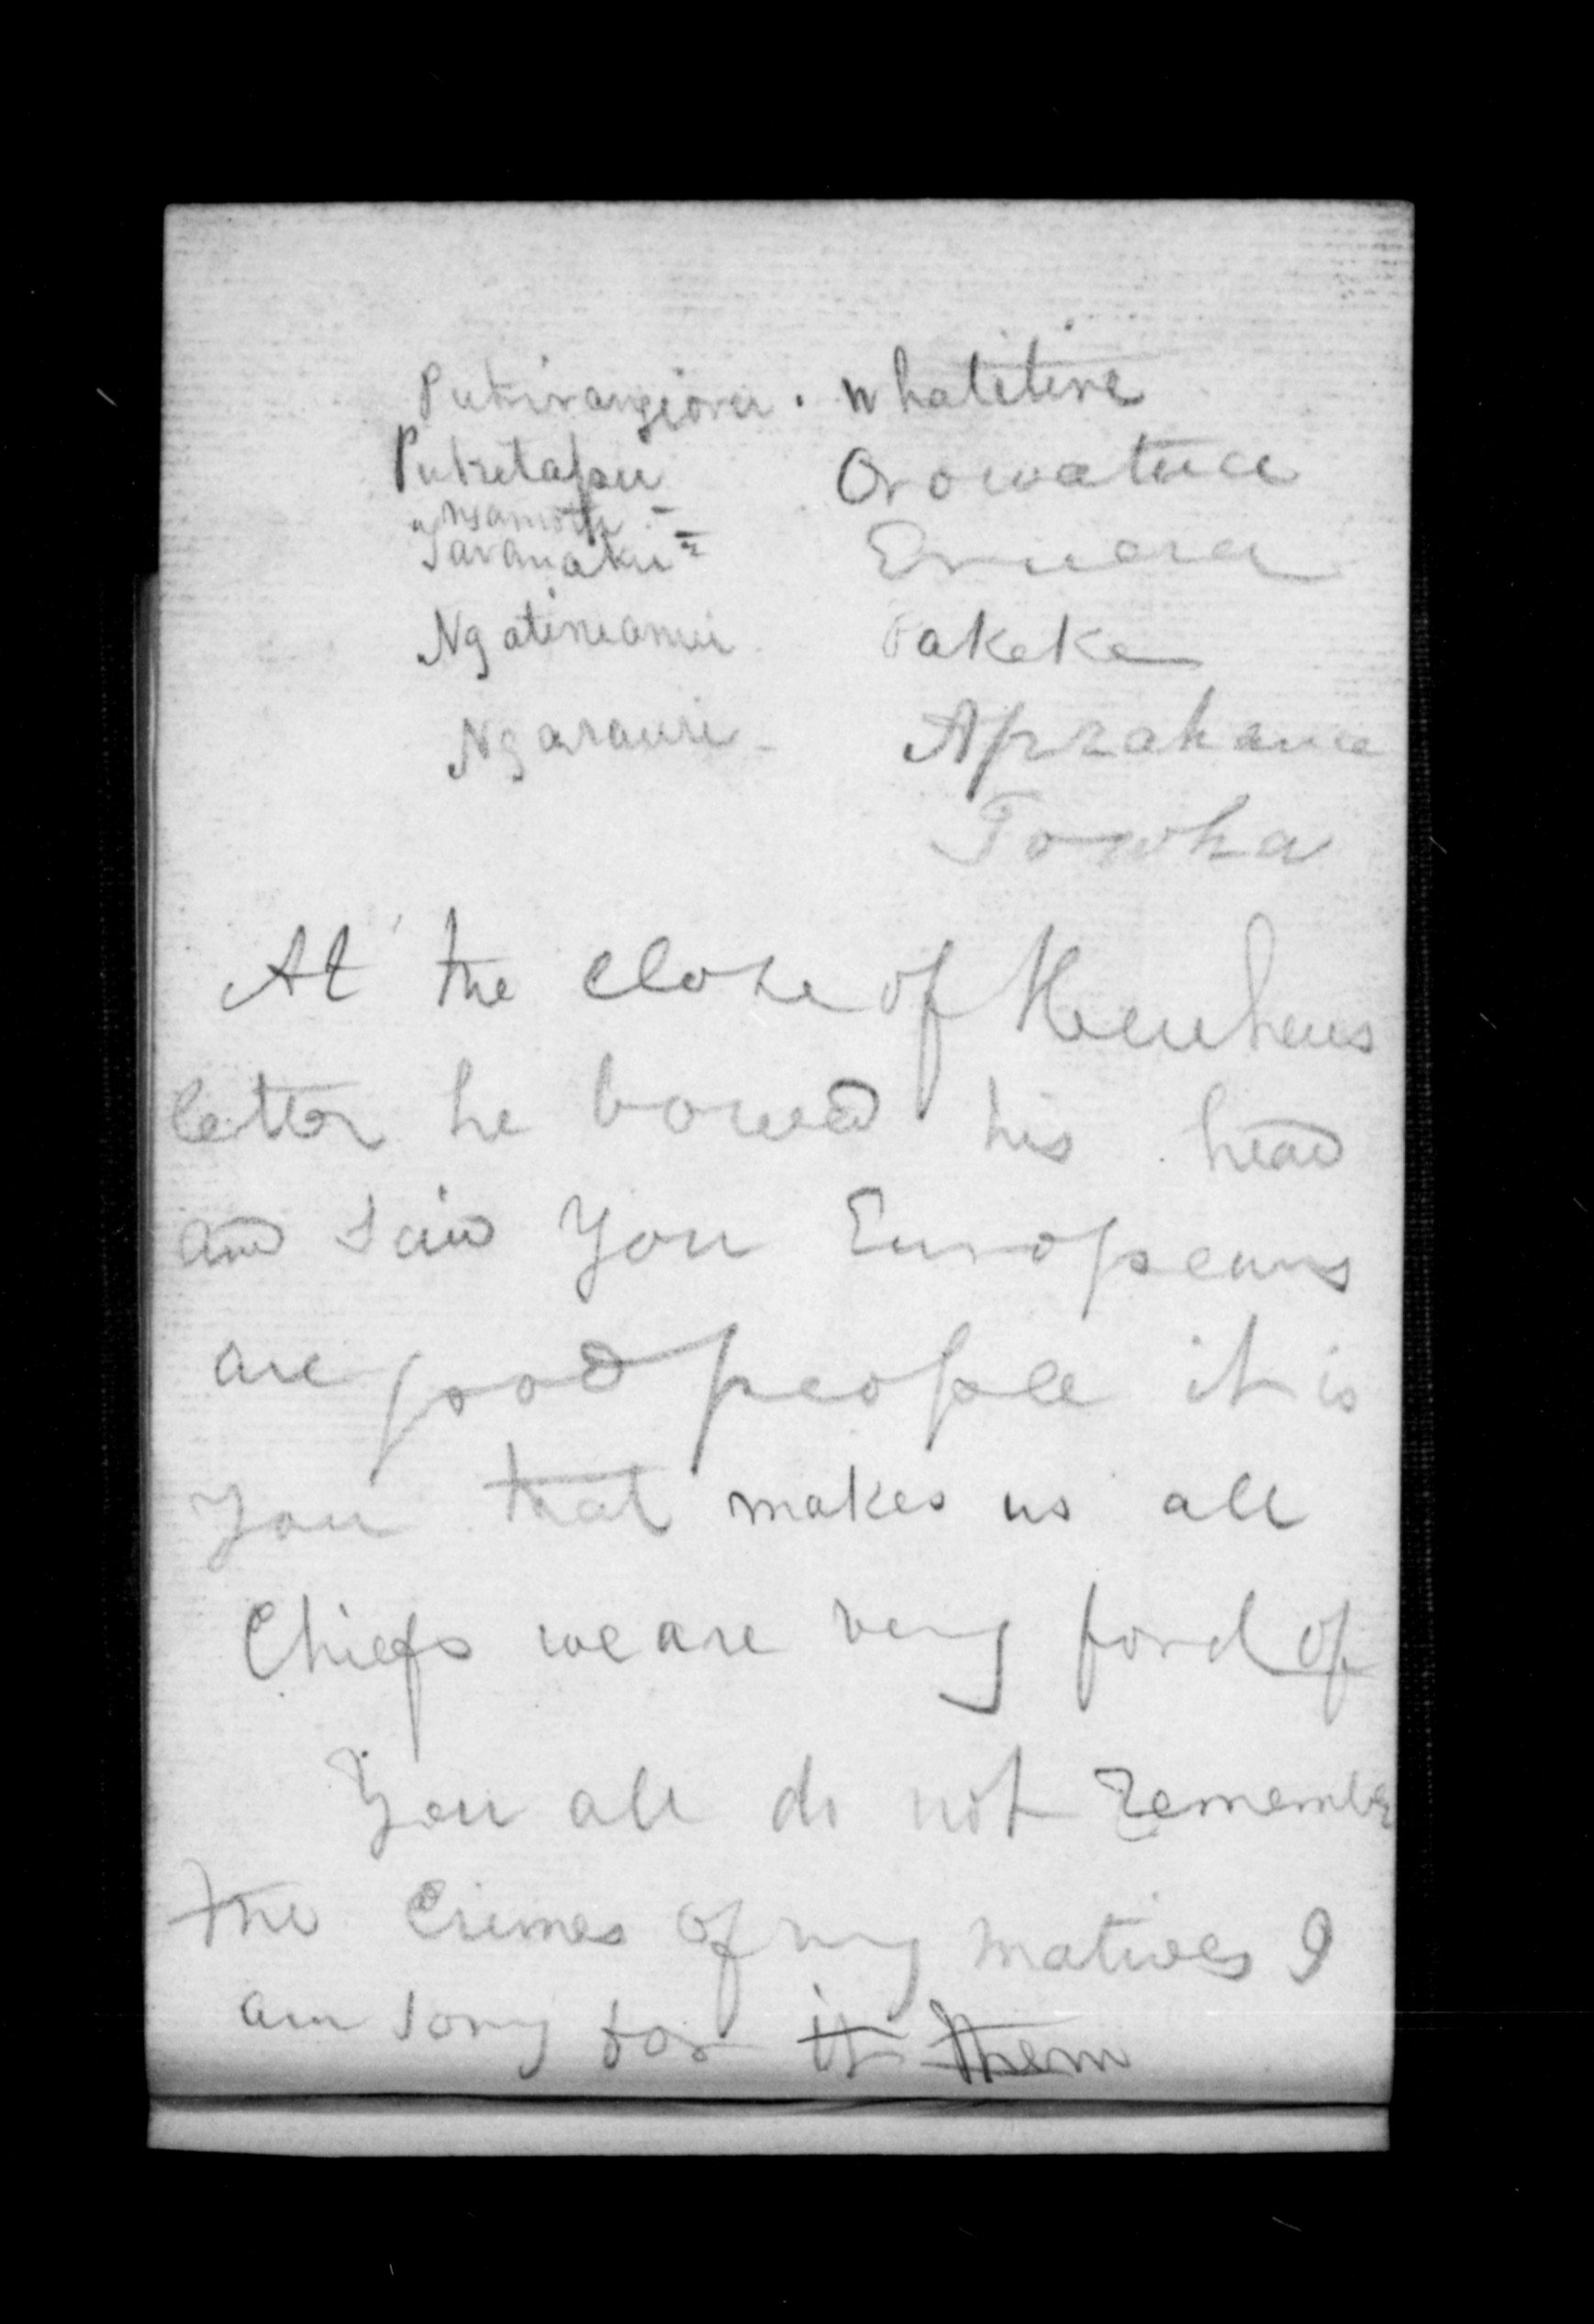 Pukirangiora . Whatitire
Puketapu Orowatua
Ngamotu -
Taranaki = Eruera
Ngatirianui Pakeke
Ngarauri - Aprahama
Towha
At the close of Heuheus
letter he bowed his head
and said You Europeans
are good people it is
you that makes us all
Chiefs we are very fond of
You all do not remember
the Crimes of my natives I
am sorry for it them